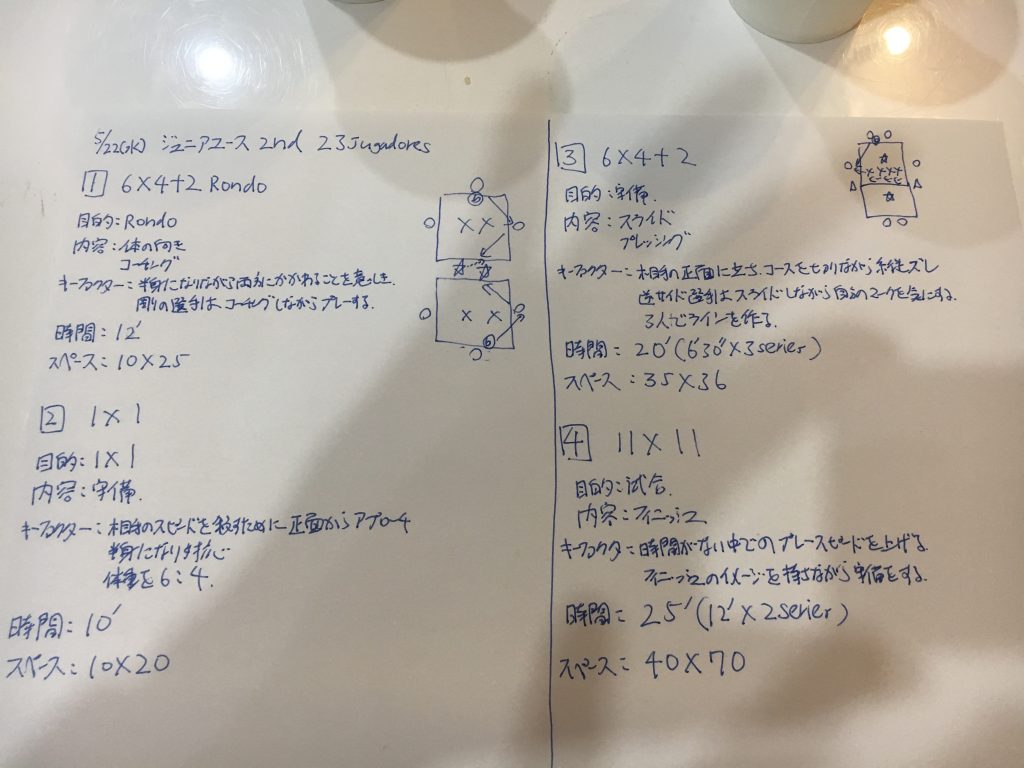 5/22(水) ジュニアユース 2nd 23 Jugadores
1 6×4+2 Rondo
目的: Rondo
内容: 体の向き
コーチング
キーファクター: 半身になりながら両方にかかわることを意識し、
周りの選手は、コーチングしながらプレーする。
時間: 12'
スペース: 10×25
2 1×1
目的: 1×1
内容: 守備.
キーファクター: 相手のスピードを殺すために正面からアプローチ
半身になり対応
体重を6:4.
時間: 10'
スペース: 10×20
3 6×4+2
目的: 守備.
内容: スライド
プレッシング
キーファクター: 相手の正面に立ち、コースをきりながら
逆サイド選手はスライドしながら自分のマークを気にする.
3人でラインを作る.
時間: 20'(6'30"×3serier)
スペース: 35×36
4 11×11
目的: 試合.
内容: フィニッシュ
キーファクタ: 時間がない中でのプレースピードを上げる.
フィニッシュのイメージを持ちながら守備をする.
時間: 25'(12'×2serier)
スペース: 40×70